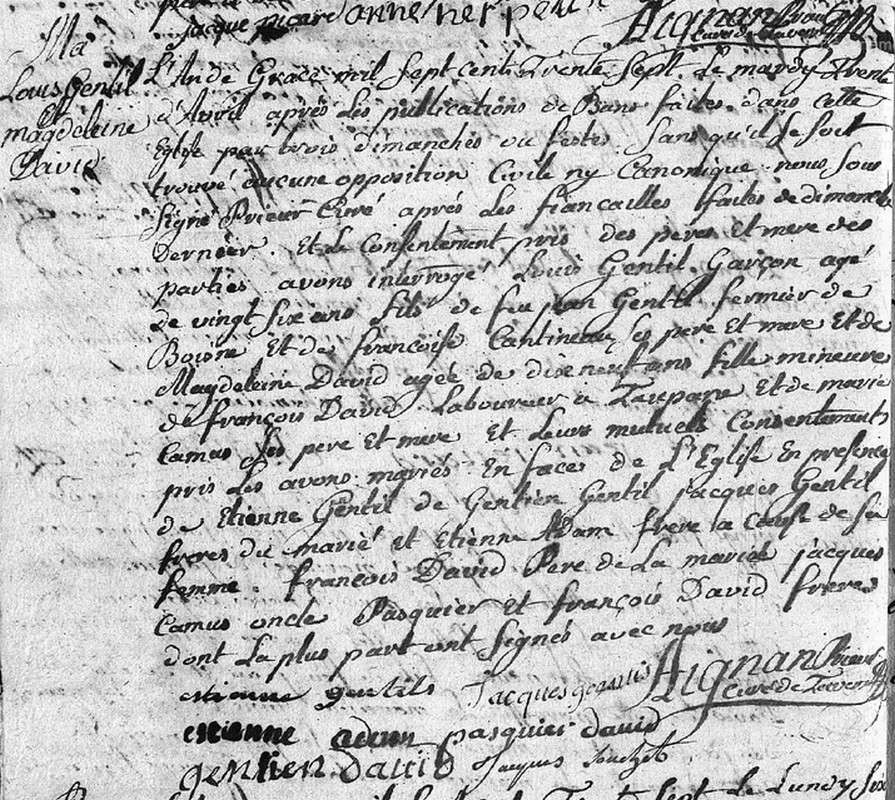 jacque picard anne herpen
Aignan Prieur
Curé de Tavers
Ma
Louis Gentil
Et
magdeleine
David
L'An de Grace mil sept cent trente sept. Le mardy trente
d'Avril après les publications de Bans faites dans cette
Eglise par trois dimanches ou festes Sans qu'il se soit
trouvé aucune opposition Civile ny Canonique nous sous
signé Prieur Curé aprés les fiancailles faites de dimanche
dernier. Et le Consentement pris des peres Et mere des
parties avons interrogé Louis Gentil Garçon agé
de vingt six ans fils de feu jean Gentil fermier de
Boisne Et de françoise Cantineau ses pere Et mere Et de
Magdeleine David agée de dixneuf ans fille mineure
de françois David Laboureur a Et de marie
Camus Ses pere Et mere Et Leurs mutuels Consentements
pris Les avons mariés En face de L'Eglise En presence
de Etienne Gentil de Gentien Gentil jacques Gentil
freres du marié et Etienne Adam frere a Cause de sa
femme. francois David Pere de La mariée jacques
Camus oncle Pasquier Et françois David freres
dont La plus part ont signés avec nous
estienne gentils Jacques gentils Aignan Prieur
Curé de Tavers
estienne adam pasquier david
gentien david Jacques
sept Le Lundy six